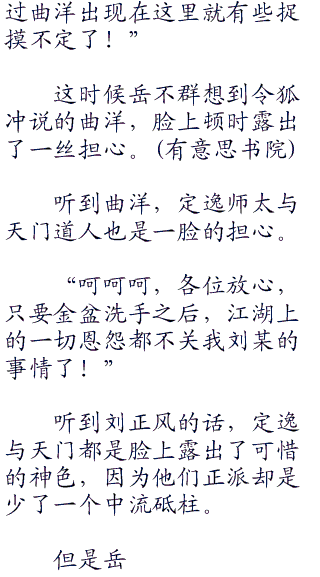 过曲洋出现在这里就有些捉
摸不定了！”
这时候岳不群想到令狐
冲说的曲洋，脸上顿时露出
了一丝担心。(有意思书院)
听到曲洋，定逸师太与
天门道人也是一脸的担心。
“呵呵呵，各位放心，
只要金盆洗手之后，江湖上
的一切恩怨都不关我刘某的
事情了！”
听到刘正风的话，定逸
与天门都是脸上露出了可惜
的神色，因为他们正派却是
少了一个中流砥柱。
但是岳